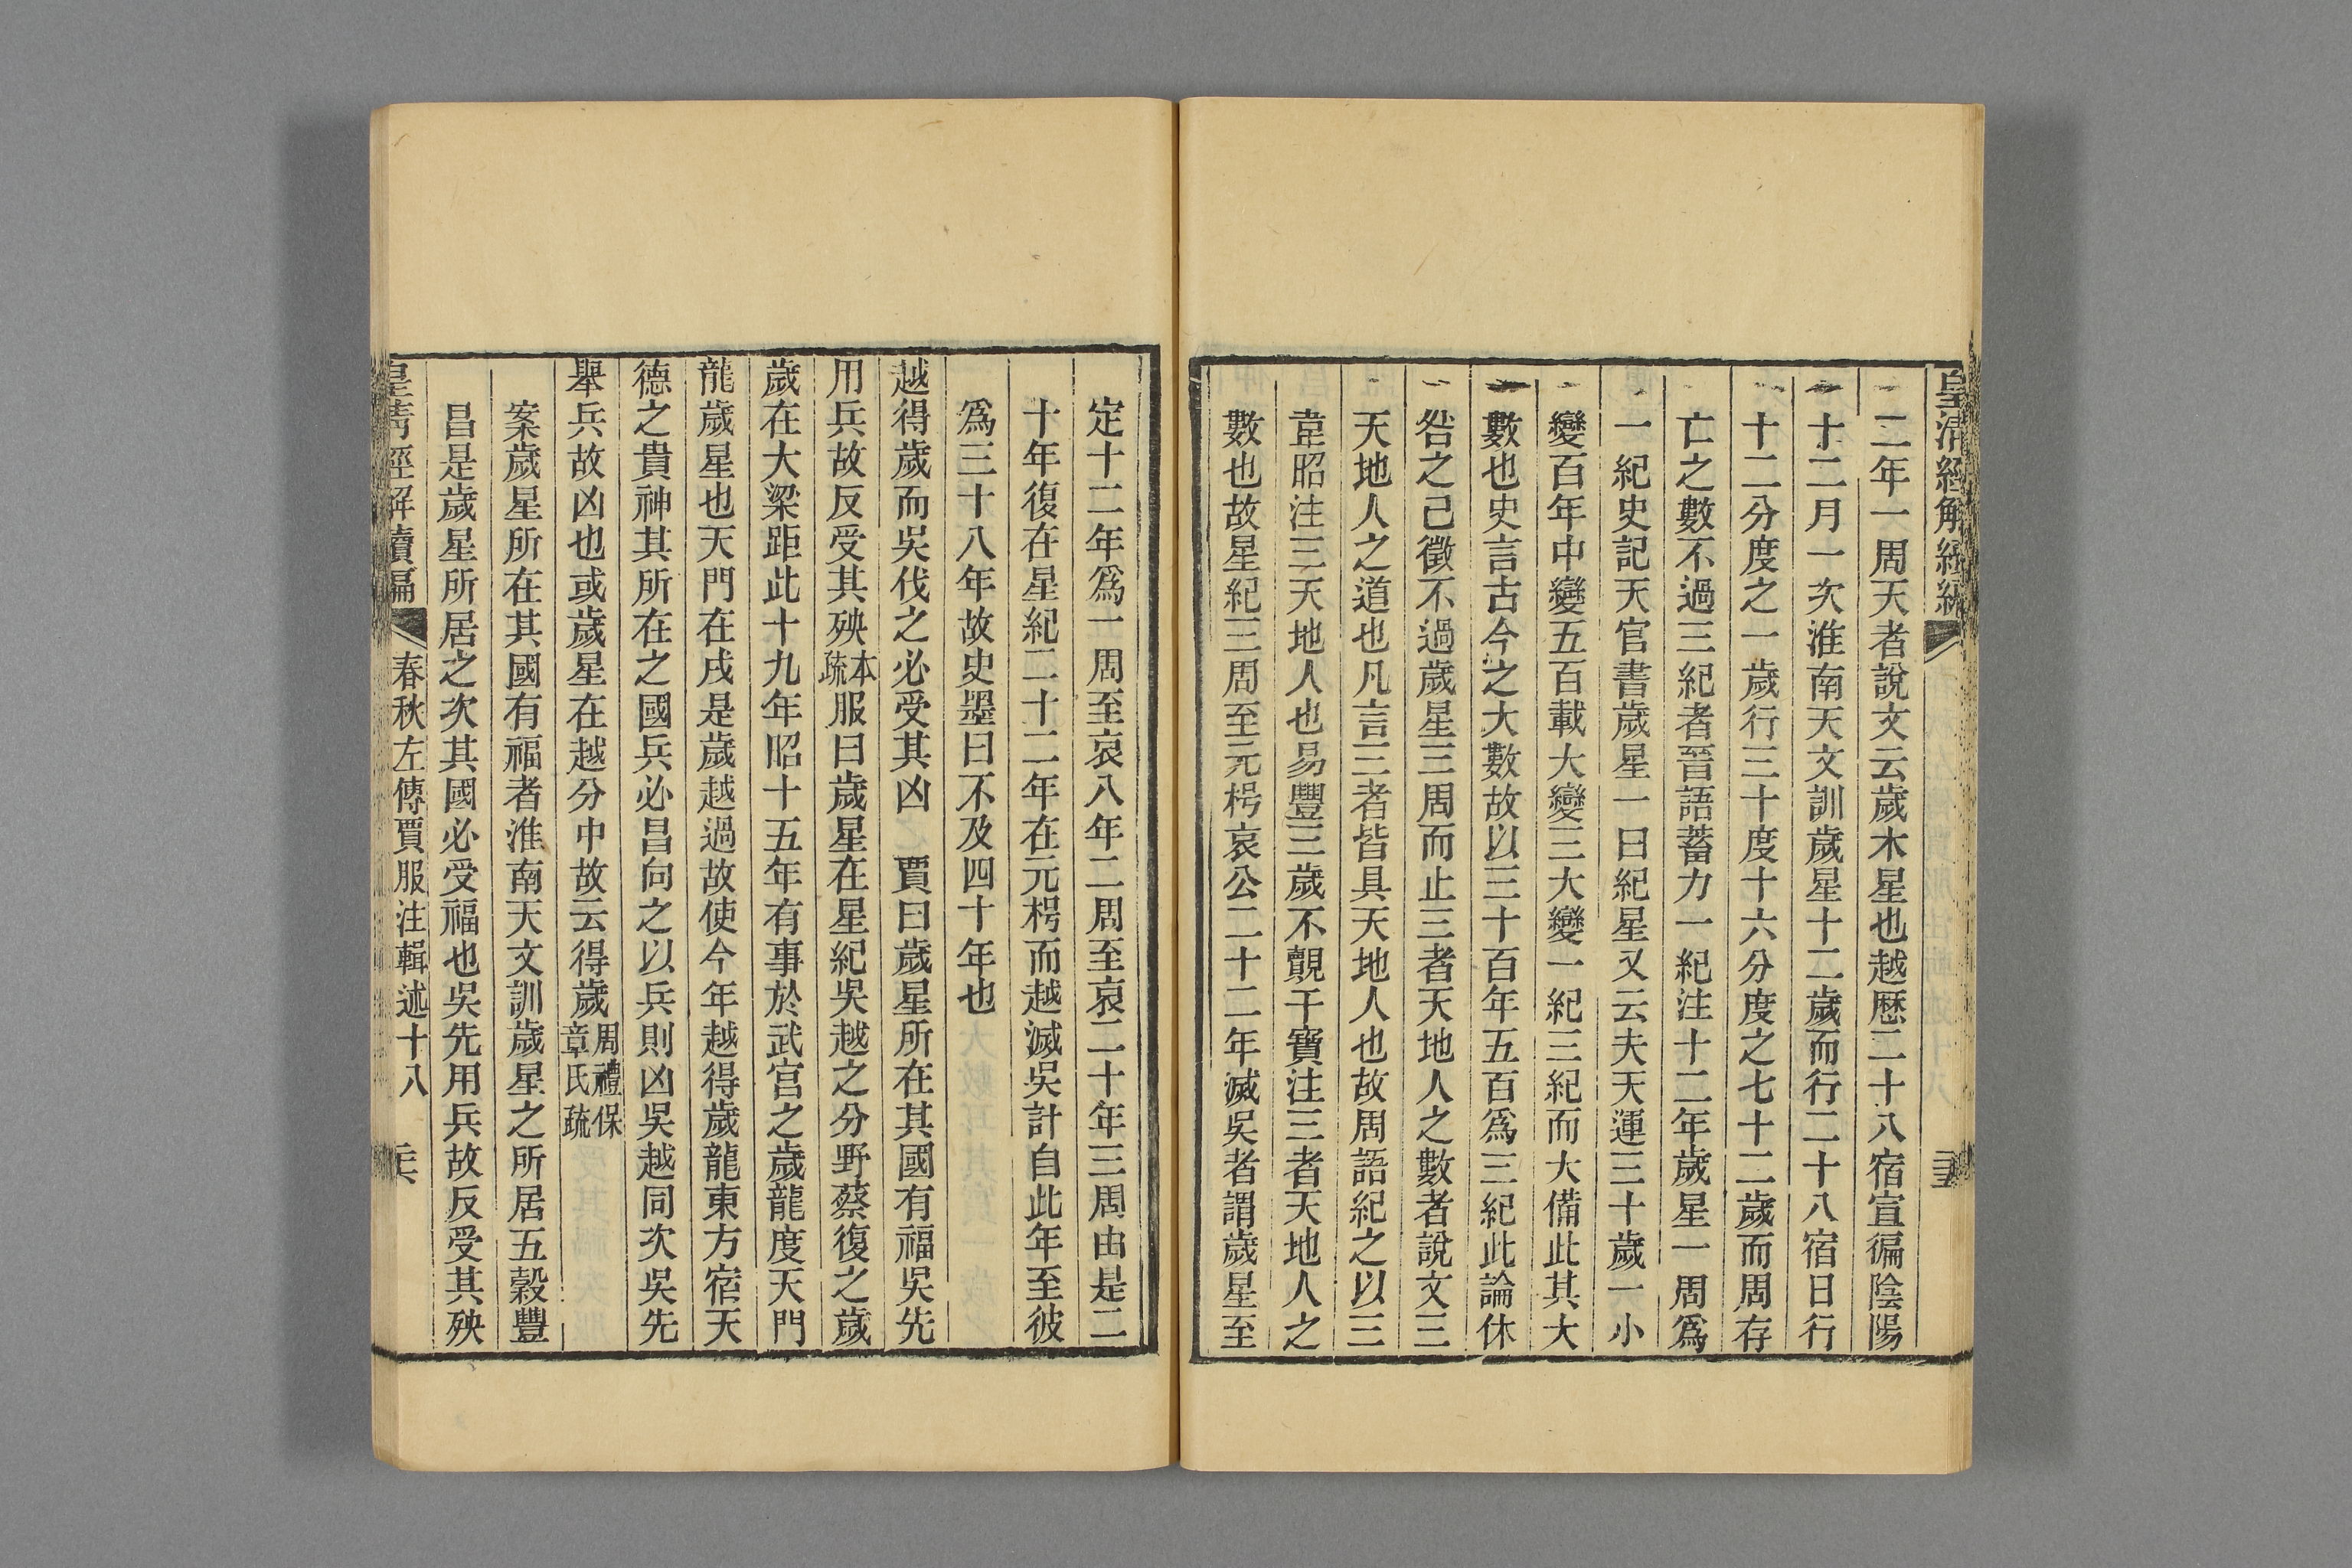 皇清經解續編
二年一周天者說文云歲木星也越歷二十八宿宣徧陰陽
十二月一次淮南天文訓歲星十二歲而行二十八宿日行
十二分度之一歲行三十度十六分度之七十二歲而周存
亡之數不過三紀者晉語蓄力一紀注十二年歲星一周爲
一紀史記天官書歲星一曰紀星又云夫天運三十歲一小
變百年中變五百載大變三大變一紀三紀而大備此其大
數也史言古今之大數故以三十百年五百爲三紀此論休
咎之己徵不過歲星三周而止三者天地人之數者說文三
天地人之道也凡言三者皆具天地人也故周語紀之以三
韋昭注三天地人也易豐三歲不覿干寶注三者天地人之
數也故星紀三周至元枵哀公二十二年滅吳者謂歲星至
定十二年爲一周至哀八年二周至哀二十年三周由是二
十年復在星紀二十二年在元枵而越滅吳計自此年至彼
爲三十八年故史墨曰不及四十年也
越得歲而吳伐之必受其凶　賈曰歲星所在其國有福吳先
用兵故反受其殃本疏服曰歲星在星紀吳越之分野蔡復之歲
歲在大梁距此十九年昭十五年有事於武宮之歲龍度天門
龍歲星也天門在戌是歲越過故使今年越得歲龍東方宿天
德之貴神其所在之國兵必昌向之以兵則凶吳越同次吳先
舉兵故凶也或歲星在越分中故云得歲周禮保章氏疏
案歲星所在其國有福者淮南天文訓歲星之所居五穀豐
昌是歲星所居之次其國必受福也吳先用兵故反受其殃
皇清經解續編　春秋左傳賈服注輯述十八